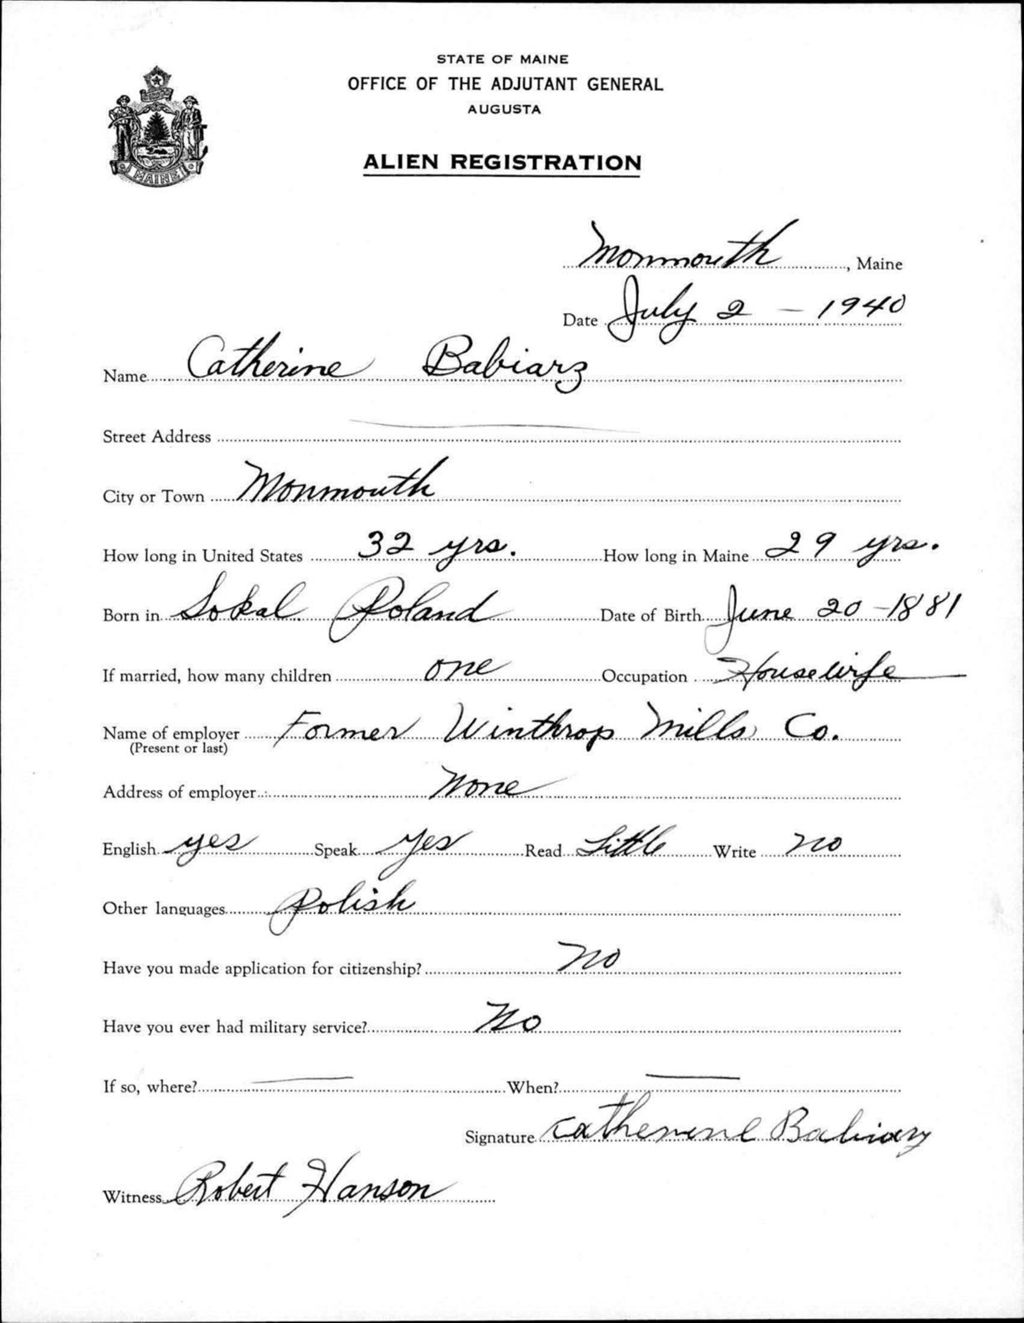 STATE OF MAINE
OFFICE OF THE ADJUTANT GENERAL
AUGUSTA
ALIEN REGISTRATION
MAINE
Monmouth, Maine
Date July 2 - 1940
Name Catherine Babiarz
Street Address
City or Town Monmouth
How long in United States 32 yrs. How long in Maine 29 yrs.
Born in Sokal Poland Date of Birth June 20-1881
If married, how many children one Occupation Housewife
Name of employer Former Winthrop Mills Co.
(Present or last)
Address of employer None
English yes Speak Yes Read Little Write no
Other languages Polish
Have you made application for citizenship? No
Have you ever had military service? No
If so, where? When?
Signature Catherine Babiarz
Witness Robert Hanson